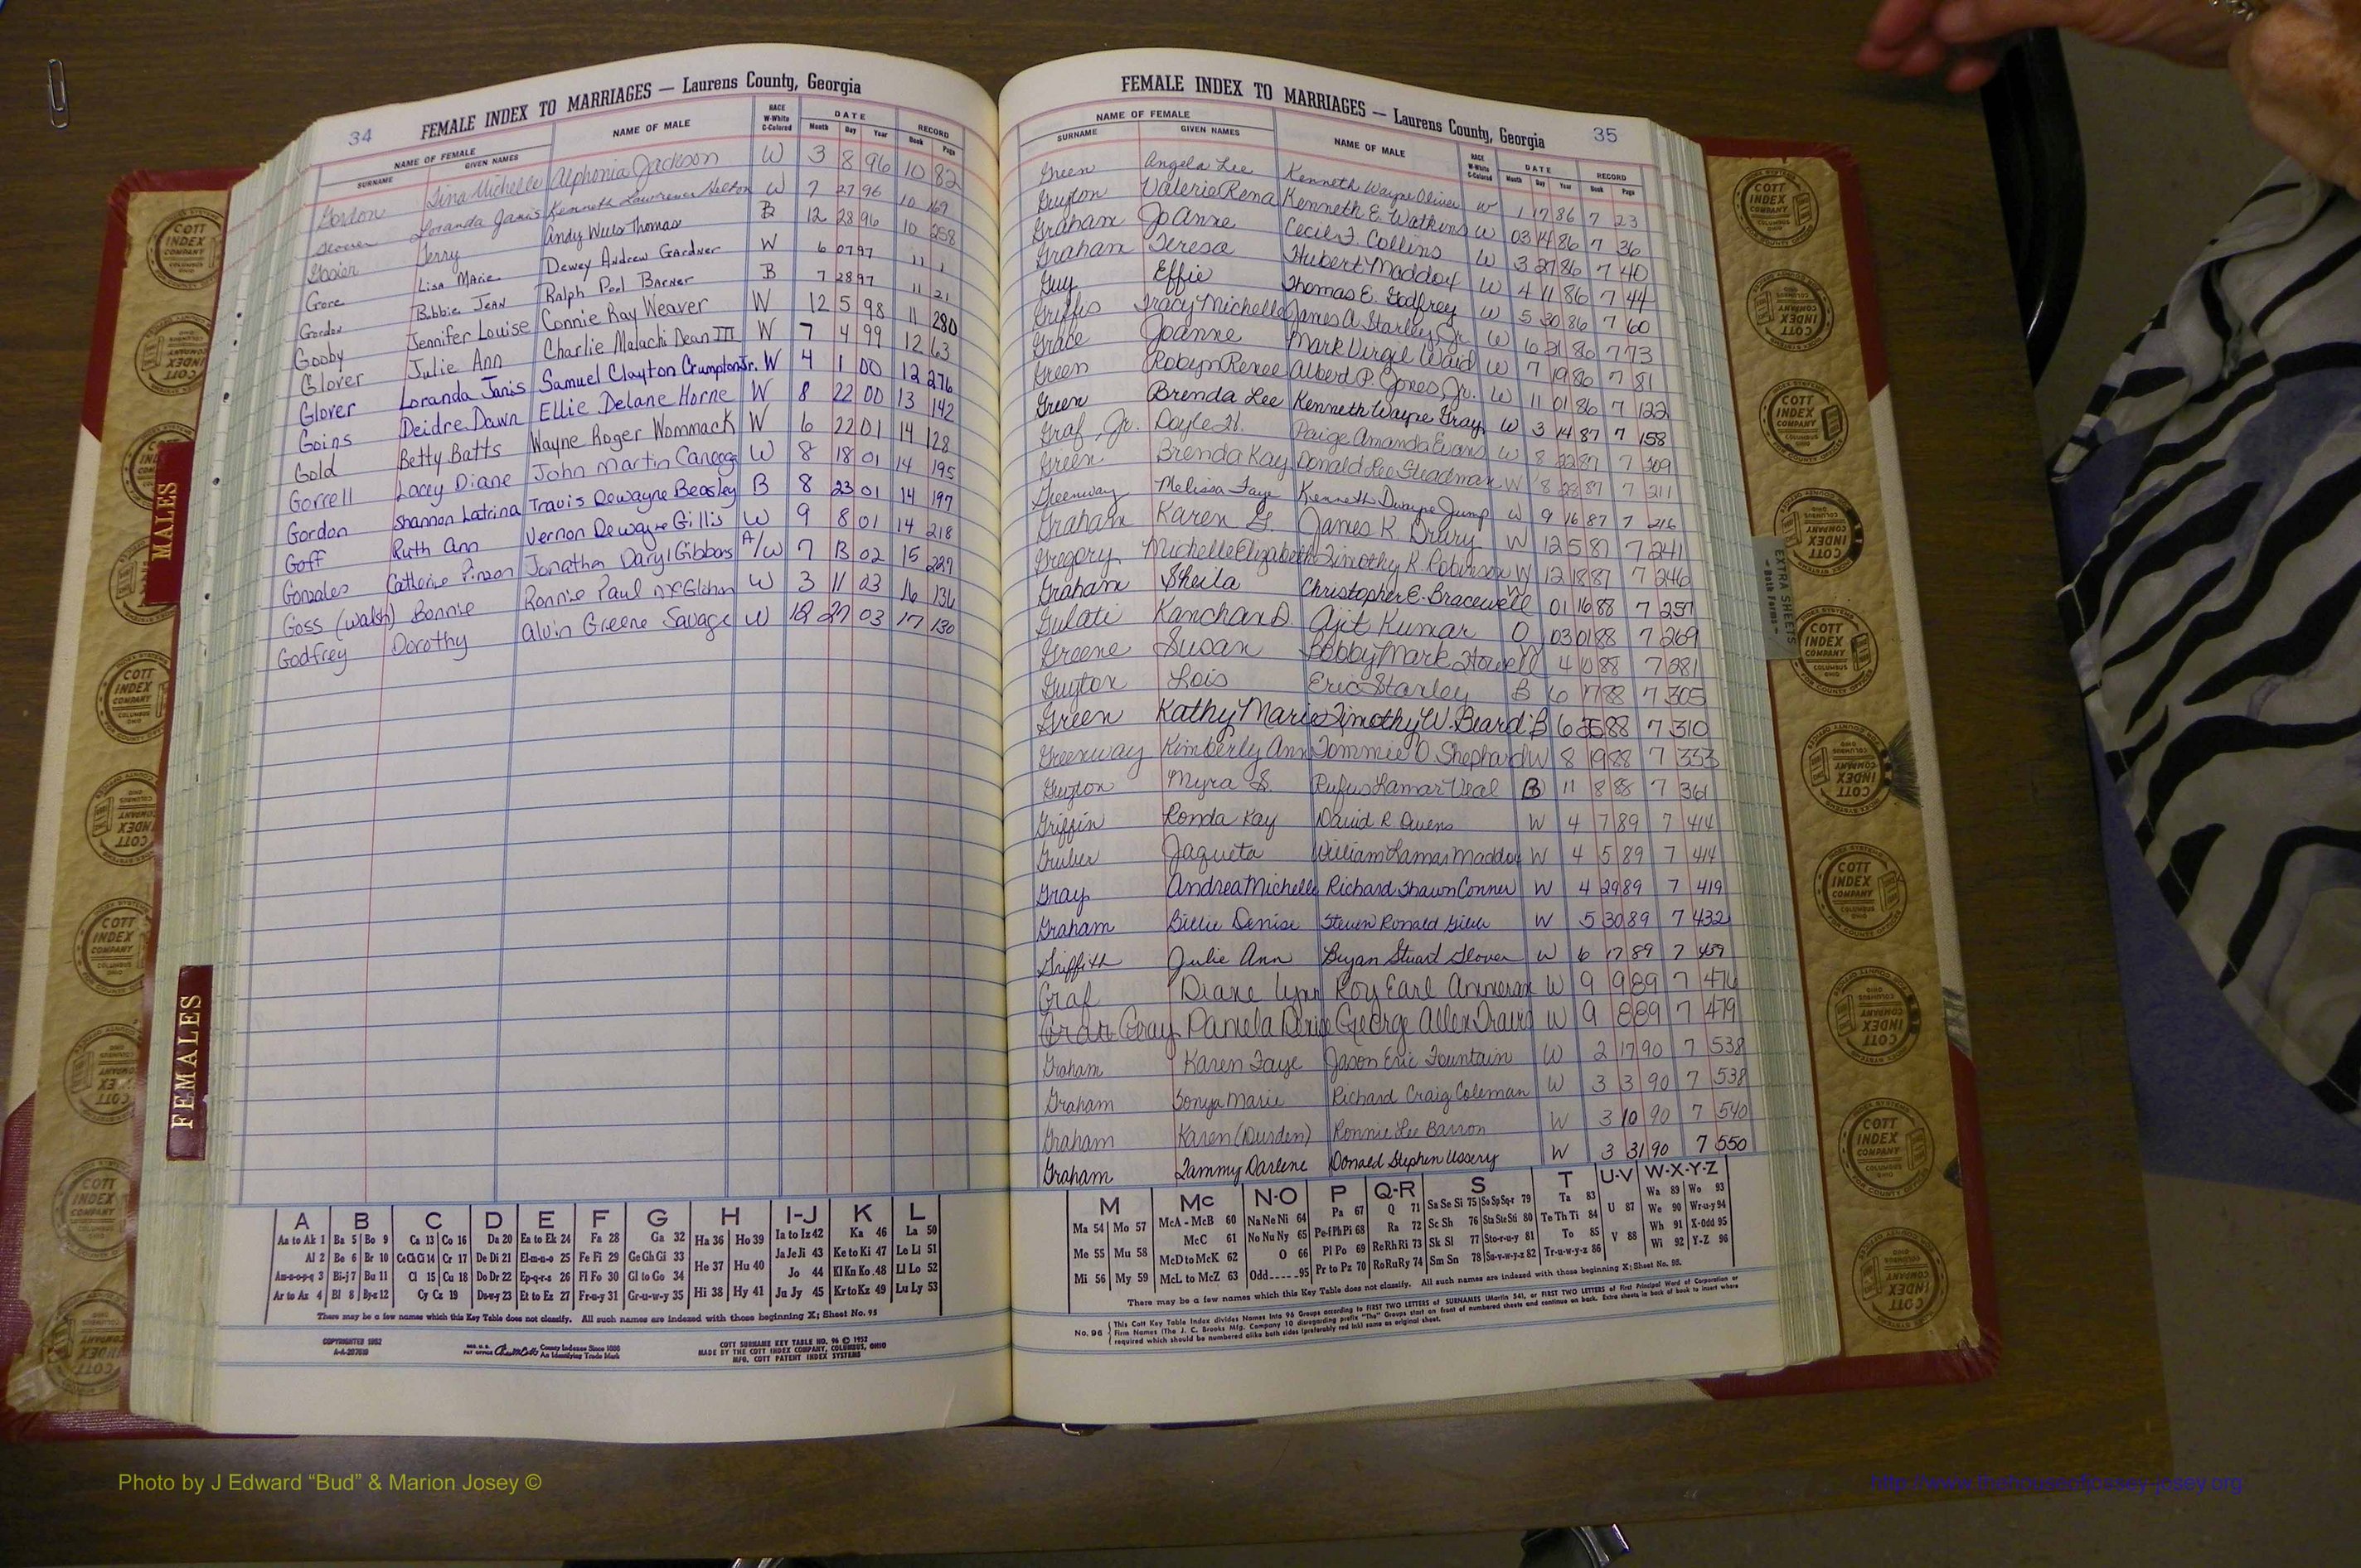 34 FEMALE INDEX TO MARRIAGES — Laurens County, Georgia
NAME OF FEMALE NAME OF MALE RACE W-White C-Colored DATE RECORD
SURNAME GIVEN NAMES Month Day Year Book Page
Gordon Tina Michelle Alphonia Jackson W 3 8 96 10 82
Loranda Janis Kenneth Lawrence W 7 27 96 10 169
Terry Andy Wells Thomas B 12 28 96 10 258
Gore Lisa Marie Dewey Andrew Gardner W 6 07 97 11 1
Gordon Bobbie Jean Ralph Peel Barner B 7 28 97 11 21
Gooby Jennifer Louise Connie Ray Weaver W 12 5 98 11 280
Glover Julie Ann Charlie Malachi Dean III W 7 4 99 12 63
Glover Loranda Janis Samuel Clayton Crumpton Jr. W 4 1 00 12 276
Goins Deidre Dawn Ellie Delane Horne W 8 22 00 13 142
Gold Betty Batts Wayne Roger Wommack W 6 22 01 14 128
Gorrell Lacey Diane John Martin W 8 18 01 14 195
Gordon Shannon Latrina Travis Dewayne Beasley B 8 23 01 14 197
Goff Ruth Ann Vernon Dewayne Gillis W 9 8 01 14 218
Gonzales Catherine Pinzon Jonathan Daryl Gibbons A/W 7 13 02 15 229
Goss (Walsh) Bonnie Ronnie Paul McGlohon W 3 11 03 16 136
Godfrey Dorothy Alvin Greene Savage W 12 27 03 17 130
A B C D E F G H I-J K L
Aa to Ak 1 Ba 5 Bo 9 Ca 13 Co 16 Da 20 Ea to Ek 24 Fa 28 Ga 32 Ha 36 Ho 39 Ia to Iz 42 Ka 46 La 50
Al 2 Be 6 Br 10 Ce Ch Ci 14 Cr 17 De Di 21 El-m-n-o 25 Fe Fi 29 Ge Gh Gi 33 He 37 Hu 40 Ja Je Ji 43 Ke to Ki 47 Le Li 51
Am-n-o-p-q 3 Bi-j 7 Bu 11 Cl 15 Cu 18 Do Dr 22 Ep-q-r-s 26 Fl Fo 30 Gl to Go 34 Jo 44 Kl Kn Ko 48 Ll Lo 52
Ar to Az 4 Bl 8 By-z 12 Cy Cz 19 Du-w-y 23 Et to Ez 27 Fr-u-y 31 Gr-u-w-y 35 Hi 38 Hy 41 Ju Jy 45 Kr to Kz 49 Lu Ly 53
There may be a few names which this Key Table does not classify. All such names are indexed with those beginning X; Sheet No. 95
COPYRIGHTED 1952
County Indexes Since 1888
An Identifying Trade Mark
COTT SURNAME KEY TABLE NO. 96 © 1952
MADE BY THE COTT INDEX COMPANY, COLUMBUS, OHIO
MFG. COTT PATENT INDEX SYSTEMS
FEMALE INDEX TO MARRIAGES — Laurens County, Georgia 35
NAME OF FEMALE NAME OF MALE RACE W-White C-Colored DATE RECORD
SURNAME GIVEN NAMES Month Day Year Book Page
Green Angela Lee Kenneth Wayne Oliver W 1 17 86 7 23
Guyton Valerie Rena Kenneth E. Watkins W 03 14 86 7 36
Graham Jo Anne Cecil J. Collins W 3 27 86 7 40
Graham Teresa Hubert Maddox W 4 11 86 7 44
Guy Effie Thomas E. Godfrey W 5 30 86 7 60
Griffis Tracy Michelle James A. Starley, Jr. W 6 21 86 7 73
Grace Joanne Mark Virgil Waid W 7 19 86 7 81
Green Robyn Renee Albert P. Jones, Jr. W 11 01 86 7 122
Green Brenda Lee Kenneth Wayne Gray W 3 14 87 7 158
Graf, Jr. Doyle H. Paige Amanda Evans W 8 22 87 7 209
Green Brenda Kay Donald Lee Steadman W 8 28 87 7 211
Greenway Melissa Faye Kenneth Dwayne Jump W 9 16 87 7 216
Graham Karen G. James R. Drury W 12 5 87 7 241
Gregory Michelle Elizabeth Timothy R. Robinson W 12 18 87 7 246
Graham Sheila Christopher E. Bracewell W 01 16 88 7 257
Gulati Kanchan D. Ajit Kumar O 03 01 88 7 269
Greene Susan Bobby Mark Howell 4 10 88 7 281
Guyton Lois Eric Starley B 6 17 88 7 305
Green Kathy Marie Timothy W. Beard B 6 25 88 7 310
Greenway Kimberly Ann Tommie O. Shephard W 8 19 88 7 333
Guyton Myra S. Rufus Lamar Veal B 11 8 88 7 361
Griffin Ronda Kay David R. Owens W 4 7 89 7 414
Jaqueta William Lamar Maddox W 4 5 89 7 414
Gray Andrea Michelle Richard Shawn Conner W 4 29 89 7 419
Graham Billie Denise Steven Ronald W 5 30 89 7 432
Griffith Julie Ann Bryan Stuart Glover W 6 17 89 7 459
Graf Diane Lynn Roy Earl W 9 9 89 7 476
Gray Pamela Denise George Allen Travis W 9 8 89 7 479
Graham Karen Faye Jason Eric Fountain W 2 17 90 7 538
Graham Sonya Marie Richard Craig Coleman W 3 3 90 7 538
Graham Karen (Durden) Ronnie Lee Barron W 3 10 90 7 540
Graham Tammy Darlene Donald Stephen Ussery W 3 31 90 7 550
M Mc N-O P Q-R S T U-V W-X-Y-Z
Ma 54 Mo 57 McA - McB 60 Na Ne Ni 64 Pa 67 Q 71 Sa Se Si 75 So Sp Sq-r 79 Ta 83 U 87 Wa 89 Wo 93
Me 55 Mu 58 McC 61 No Nu Ny 65 Pe-f Ph Pi 68 Ra 72 Sc Sh 76 Sta Ste Sti 80 Te Th Ti 84 We 90 Wr-u-y 94
McD to McK 62 O 66 Pl Po 69 Re Rh Ri 73 Sk Sl 77 Sto-r-u-y 81 To 85 V 88 Wh 91 X-Odd 95
Mi 56 My 59 McL to McZ 63 Odd 95 Pr to Pz 70 Ro Ru Ry 74 Sm Sn 78 Su-v-w-y-z 82 Tr-u-w-y-z 86 Wi 92 Y-Z 96
There may be a few names which this Key Table does not classify. All such names are indexed with those beginning X; Sheet No. 95.
No. 96
This Cott Key Table Index divides Names into 96 Groups according to FIRST TWO LETTERS of SURNAMES (Martin 54), or FIRST TWO LETTERS of First Principal Word of Corporation or
Firm Names (The J. C. Brooks Mfg. Company 10 disregarding prefix "The" Groups start on front of numbered sheets and continue on back. Extra sheets in back of book to insert where
required which should be numbered alike both sides (preferably red ink) same as original sheet.
MALES
FEMALES
EXTRA SHEETS
- Both Forms -
COTT INDEX COMPANY COLUMBUS OHIO
Photo by J Edward “Bud” & Marion Josey ©
http://www.thehouseofjossey-josey.org